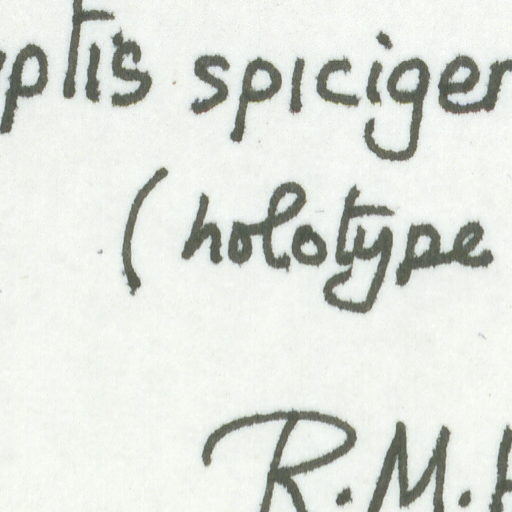 yptis spiciger
(holotype
R.M.